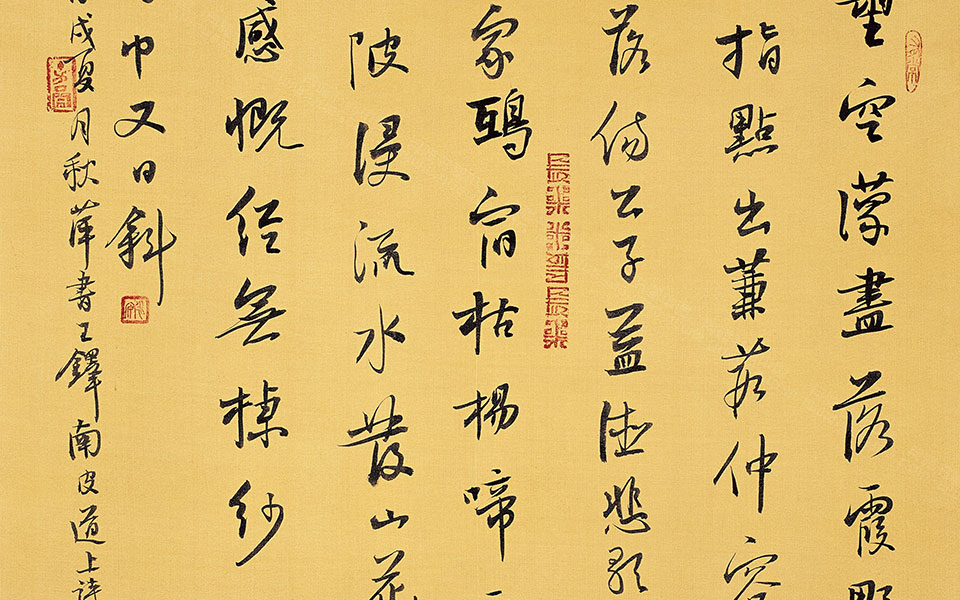 望空濛盡落霞
指點出蒹葭仲容
落傷公子益德悲歌
家鵶宿枯楊啼
陂浸流水發山花
感慨經無棣紗
巾又日斜
戌夏月秋葦書王鐸南皮道上詩